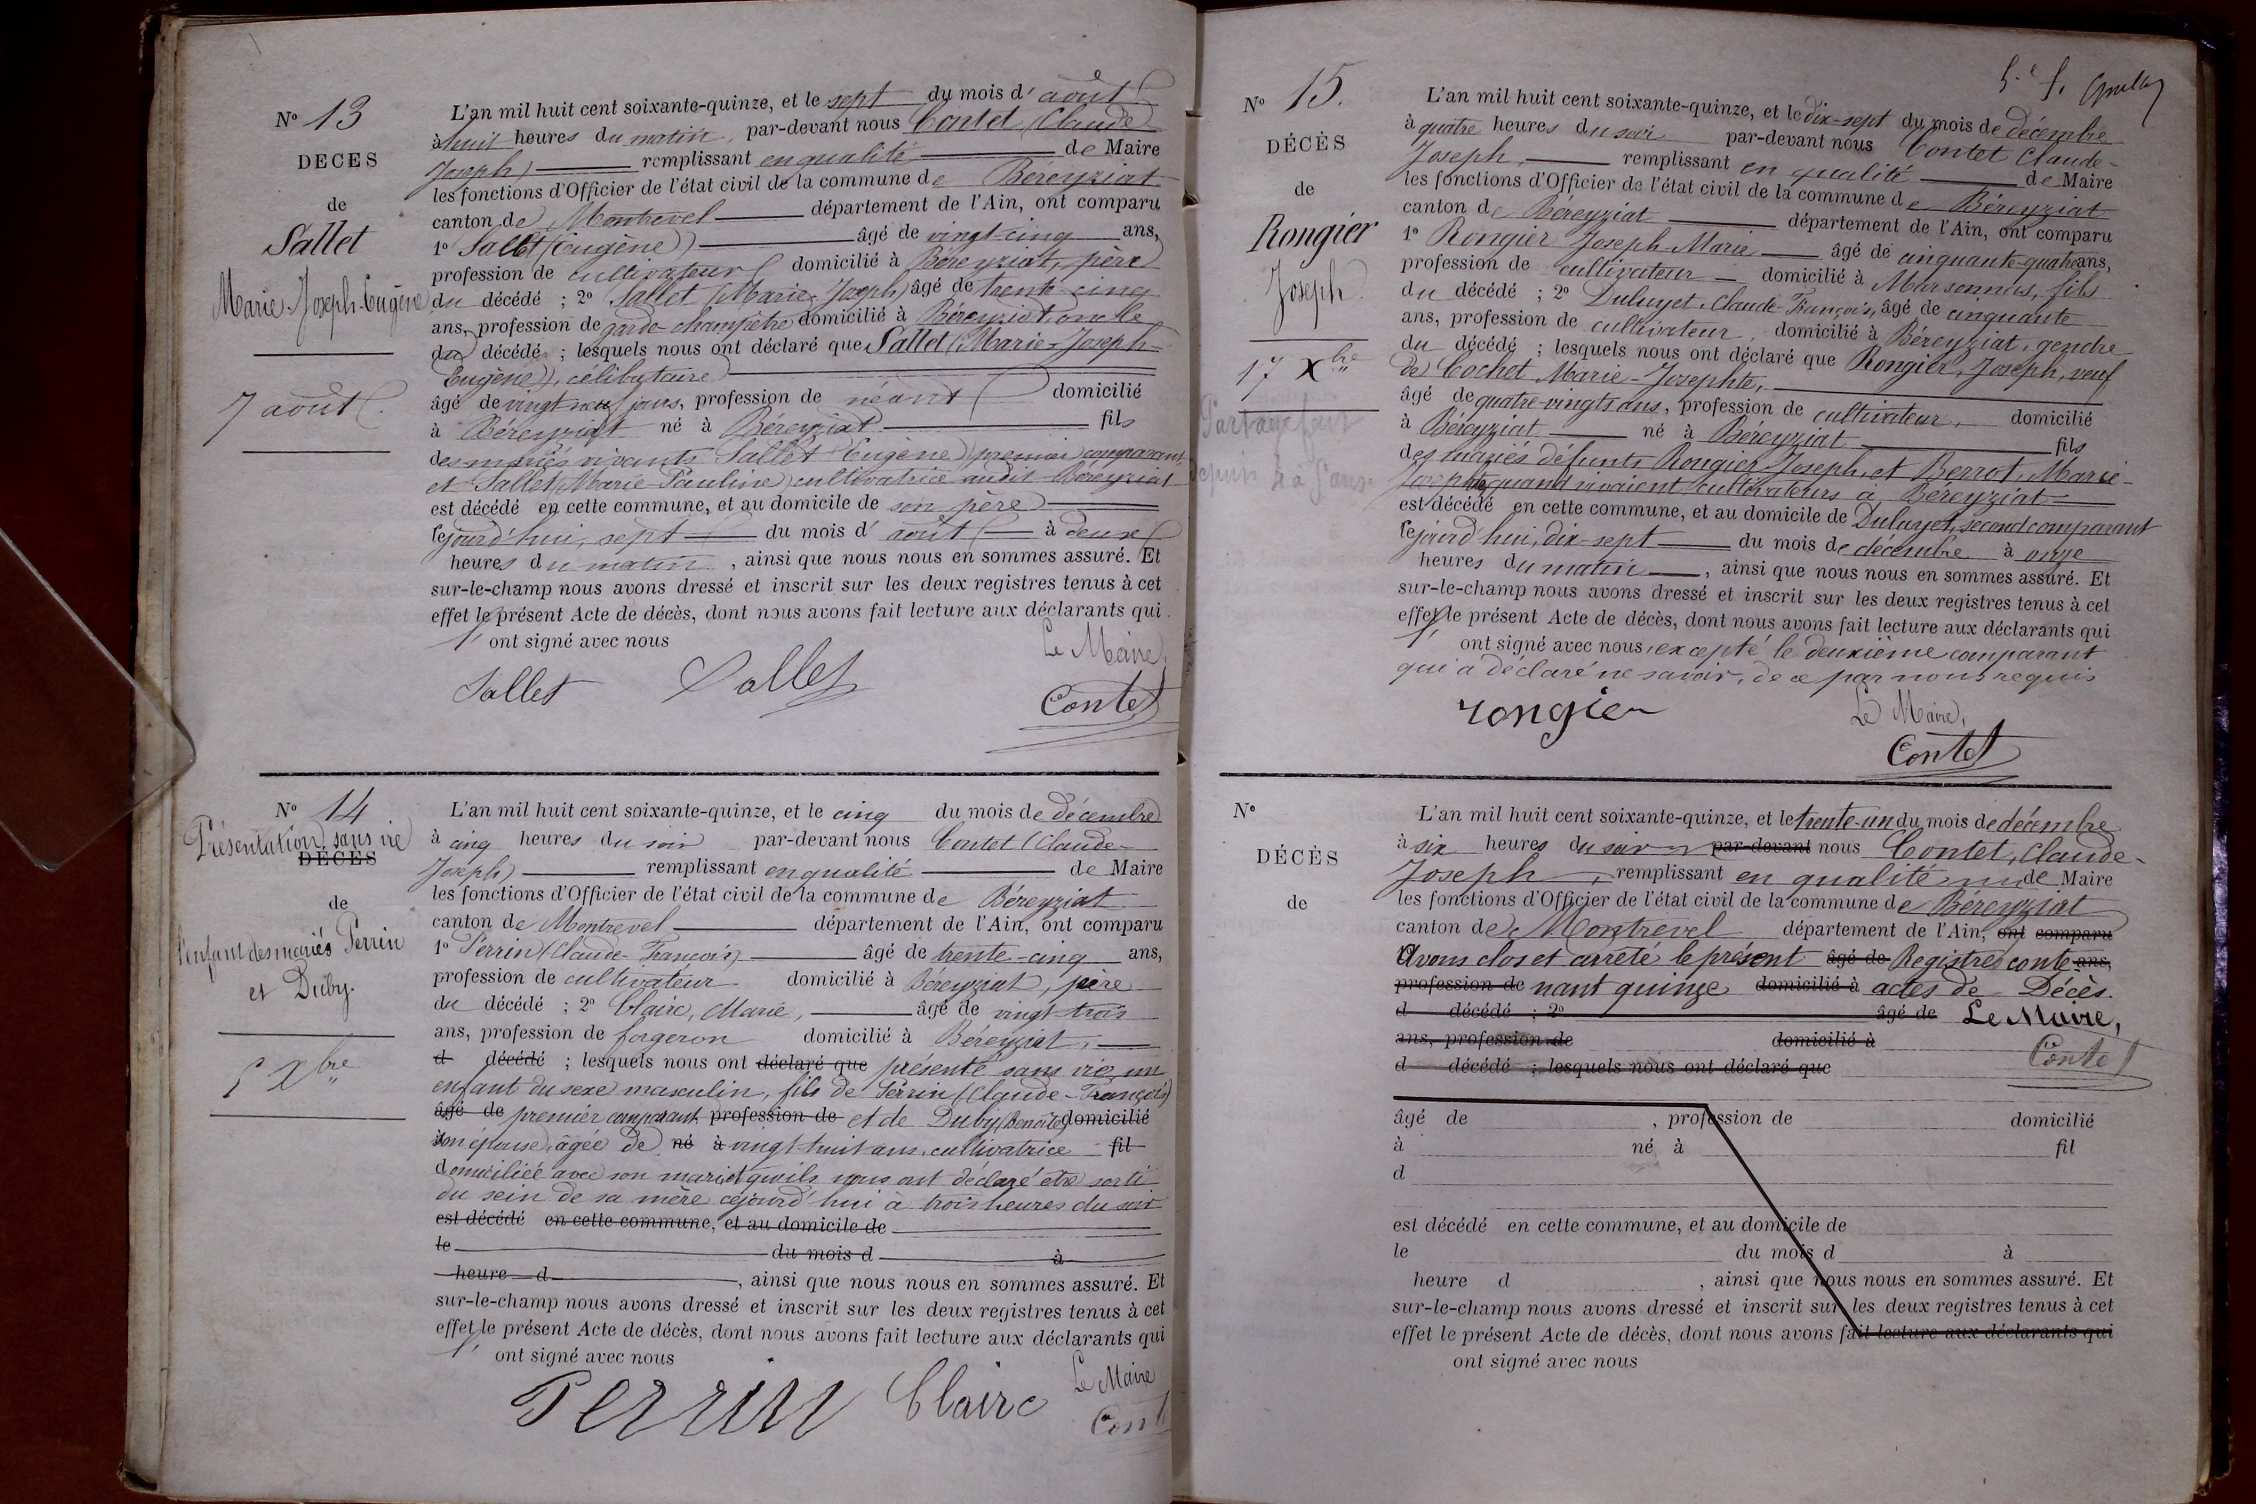 N° 13
DÉCES
de
Sallet
Marie-Joseph-Eugène
7 août
L'an mil huit cent soixante-quinze, et le sept du mois d'août
à huit heures du matin, par-devant nous Contet (Claude
Joseph) remplissant en qualité de Maire
les fonctions d'Officier de l'état civil de la commune de Béreyziat
canton de Montrevel département de l'Ain, ont comparu
1° Sallet (Eugène) âgé de vingt-cinq ans,
profession de cultivateur domicilié à Béreyziat, père
du décédé ; 2° Sallet (Marie-Joseph) âgé de trente-cinq
ans, profession de garde-champêtre domicilié à Béreyziat, oncle
du décédé ; lesquels nous ont déclaré que Sallet (Marie-Joseph-
Eugène), célibataire
âgé de vingt neuf jours, profession de néant domicilié
à Béreyziat né à Béreyziat fils
des mariés vivants Sallet (Eugène) premier comparant,
et Sallet (Marie-Pauline) cultivatrice audit Béreyziat
est décédé en cette commune, et au domicile de son père
lejourd'hui, sept du mois d'août à deux
heures du matin, ainsi que nous nous en sommes assuré. Et
sur-le-champ nous avons dressé et inscrit sur les deux registres tenus à cet
effet le présent Acte de décès, dont nous avons fait lecture aux déclarants qui
ont signé avec nous
Le Maire,
Sallet Sallet Contet
N° 14
Présentation sans vie
DÉCÈS
de
l'enfant des mariés Perrin
et Duby.
5 Xbre
L'an mil huit cent soixante-quinze, et le cinq du mois de décembre
à cinq heures du soir par-devant nous Contet (Claude-
Joseph) remplissant en qualité de Maire
les fonctions d'Officier de l'état civil de la commune de Béreyziat
canton de Montrevel département de l'Ain, ont comparu
1° Perrin (Claude-François) âgé de trente-cinq ans,
profession de cultivateur domicilié à Béreyziat, père
du décédé ; 2° Claire, Marie, âgé de vingt-trois
ans, profession de forgeron domicilié à Béreyziat,
d décédé ; lesquels nous ont déclaré que présenté sans vie un
enfant du sexe masculin, fils de Perrin (Claude-François)
âgé de premier comparant profession de et de Duby (Benoîte) domicilié
son épouse, âgée de né à vingt-huit ans, cultivatrice fil
domiciliée avec son mari, et qu'ils nous ont déclaré être sorti
du sein de sa mère cejourd'hui à trois heures du soir
est décédé en cette commune, et au domicile de
le du mois d à
heure d , ainsi que nous nous en sommes assuré. Et
sur-le-champ nous avons dressé et inscrit sur les deux registres tenus à cet
effet le présent Acte de décès, dont nous avons fait lecture aux déclarants qui
ont signé avec nous
Le Maire
Perrin Claire Contet
5e f.
N° 15.
DÉCÈS
de
Rongier
Joseph
17 Xbre
Partage fait
depuis
L'an mil huit cent soixante-quinze, et le dix-sept du mois de décembre
à quatre heures du soir par-devant nous Contet Claude-
Joseph, remplissant en qualité de Maire
les fonctions d'Officier de l'état civil de la commune de Béreyziat
canton de Béreyziat département de l'Ain, ont comparu
1° Rongier Joseph-Marie âgé de cinquante-quatre ans,
profession de cultivateur domicilié à Marsonnas, fils
du décédé ; 2° Duluyet, Claude-François, âgé de cinquante
ans, profession de cultivateur, domicilié à Béreyziat, gendre
du décédé ; lesquels nous ont déclaré que Rongier, Joseph, veuf
de Cochet Marie-Josephte,
âgé de quatre-vingts ans, profession de cultivateur, domicilié
à Béreyziat né à Béreyziat fils
des mariés défunts Rongier, Joseph, et Berrot, Marie-
Josephte, quand vivaient cultivateurs à Béreyziat
est décédé en cette commune, et au domicile de Duluyet, second comparant
lejourd'hui, dix-sept du mois de décembre à onze
heures du matin, ainsi que nous nous en sommes assuré. Et
sur-le-champ nous avons dressé et inscrit sur les deux registres tenus à cet
effet le présent Acte de décès, dont nous avons fait lecture aux déclarants qui
ont signé avec nous, excepté le deuxième comparant
qui a déclaré ne savoir, de ce par nous requis
rongier Le Maire,
Contet
N°
DÉCÈS
de
L'an mil huit cent soixante-quinze, et le trente-un du mois de décembre
à six heures du soir par-devant nous Contet, Claude-
Joseph, remplissant en qualité de Maire
les fonctions d'Officier de l'état civil de la commune de Béreyziat
canton de Montrevel département de l'Ain, ont comparu
Avons clos et arrêté le présent âgé de Registre conte ans,
profession de nant quinze domicilié à actes de Décès.
d décédé ; 2° âgé de Le Maire,
ans, profession de domicilié à Contet
d décédé ; lesquels nous ont déclaré que
âgé de , profession de domicilié
à né à fil
d
est décédé en cette commune, et au domicile de
le du mois d à
heure d , ainsi que nous nous en sommes assuré. Et
sur-le-champ nous avons dressé et inscrit sur les deux registres tenus à cet
effet le présent Acte de décès, dont nous avons fait lecture aux déclarants qui
ont signé avec nous